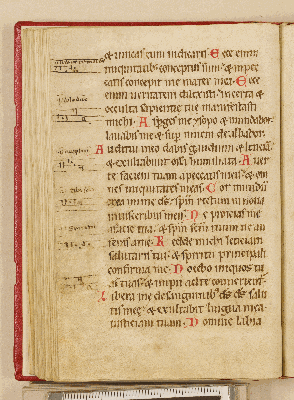 et uincas cum iudicaris Ecce enim
iniquitatib; conceptus sum et in pec
catis concepit me mater mea Ecce
enim ueritatem dilexisti incerta et
occulta sapientie tue manifestasti
michi Asperges me ysopo et mundabor
lauabis me et sup niuem dealbabor
Auditui meo dabis gaudium et leticiā
et exultabunt ossa humiliata Auer
te faciem tuam a peccatis meis et om
nes iniquitates meas Cor mundū
crea in me ds et spm rectum innoua
in uisceribus meis Ne proicias me
a facie tua et spm scm tuum ne au
feras a me Redde michi leticiam
salutaris tui et spiritu principali
confirma me Docebo iniquos ui
as tuas et impii ad te conuertent
Libera me de sanguinib; ds ds salu
tis mee et exultabit lingua mea
iusticiam tuam Domine labia